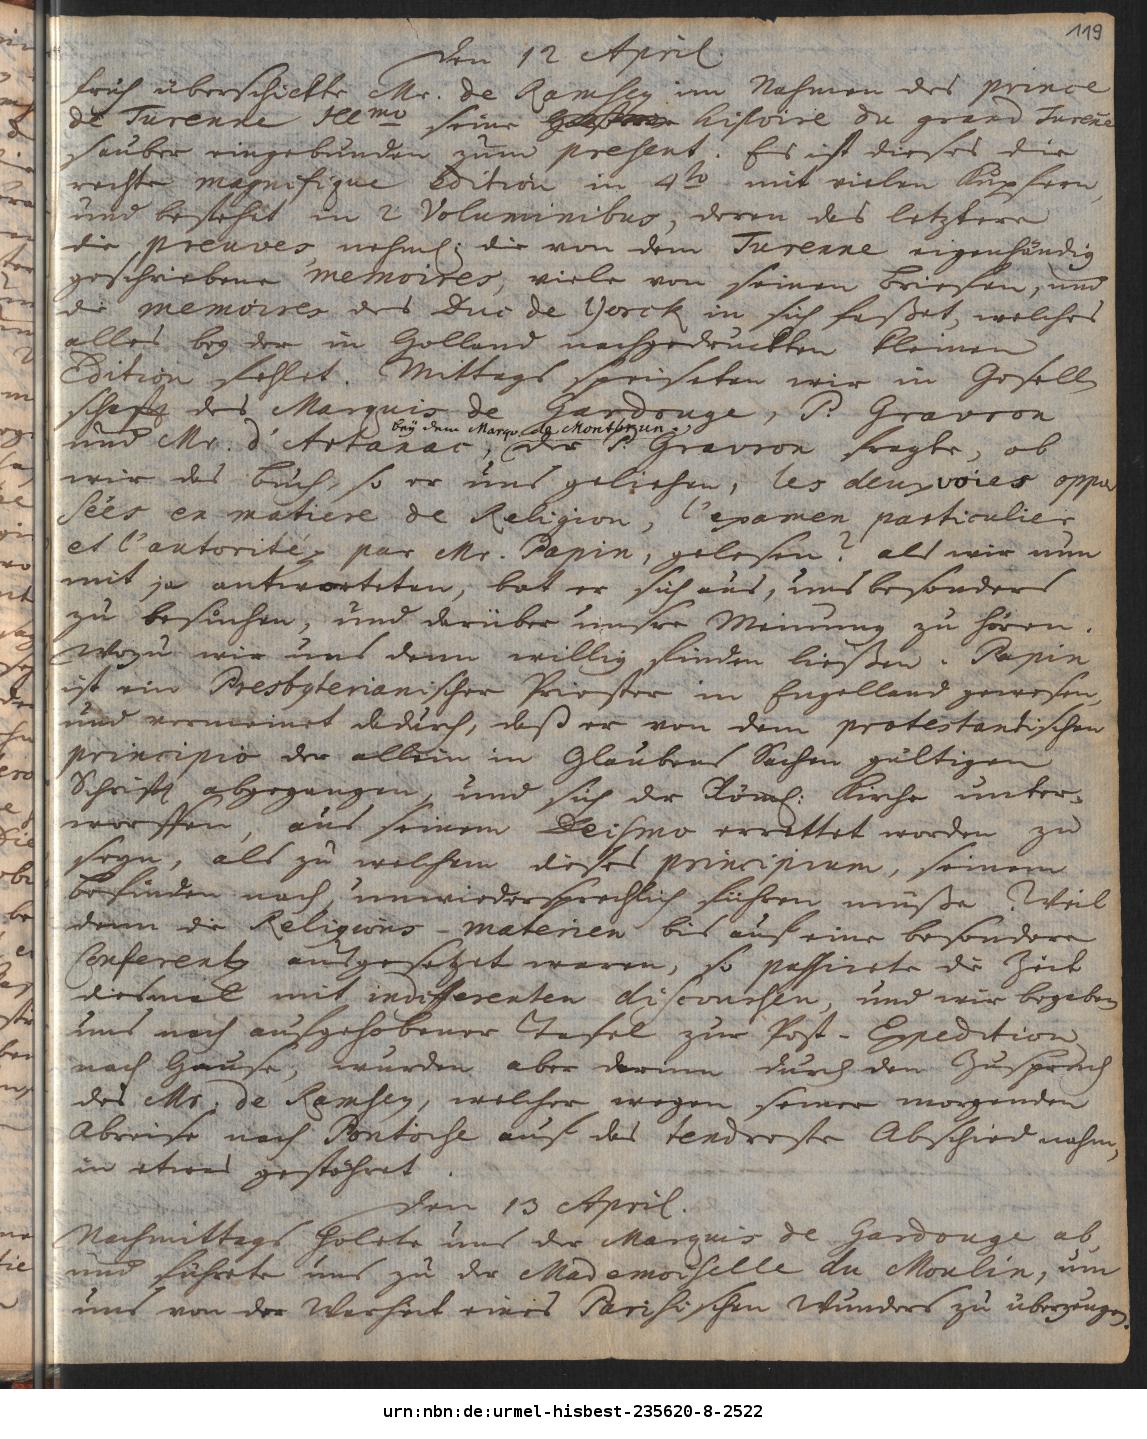 119
den 12 April.
früh überschickte Mr. de Ramsey im Nahmen des prince
de Turenne Illmo seine histoire du grand Turenne
sauber eingebunden zum present. Es ist dieses die
rechte magnifique Edition in 4to mit vielen Kupfern,
und bestehet in 2 Voluminibus, deren das letztere
die preuves, nehml: die von dem Turenne eigenhändig
geschriebene memoires, viele von seinen Briefen, und
die memoires des Duc de Yorck in sich faßet, welches
alles bey der in Holland nachgedruckten kleinen
Edition fehlet. Mittags speiseten wir in Gesell
schafft des Marquis de Gardouge, P. Gravron
bey dem Marqu. de Montbrun
und Mr. d'Artanac, der P. Gravron fragte, ob
wir das Buch, so er uns geliehen, les deux voies oppo
sées en matiere de Religion, l'examen particulier
et l'autorité, par Mr. Papin, gelesen? als wir nun
mit ja antworteten, bat er sich aus, uns besonders
zu besuchen, und darüber unsre Meinung zu hören.
Wozu wir uns denn willig finden ließen. Papin
ist ein Presbyterianischer Priester in Engelland gewesen,
und vermeinet dadurch, daß er von dem protestantischen
principio der allein in Glaubens Sachen gültigen
Schrifft abgegangen, und sich der Röml: Kirche unter-
worffen, aus seinem Deismo errettet worden zu
seyn, als zu welchem dieses principium, seinem
Befinden nach, unwiedersprechlich führen müße. Weil
denn die Religions-materien bis auf eine besondere
Conferentz ausgesetzet waren, so passirete die Zeit
diesmal mit indifferenten discoursen, und wir begaben
uns nach aufgehobener Tafel zur Post-Expedition
nach Hause, wurden aber darinn durch den Zuspruch
des Mr. de Ramsey, welcher wegen seiner morgenden
Abreise nach Pontoise auf das tendreste Abschied nahm,
in etwas gestöhret.
den 13 April.
Nachmittags holete uns der Marquis de Gardouge ab,
und führete uns zu der Mademoiselle du Moulin, um
uns von der Warheit eines Parisischen Wunders zu überzeugen.
urn:nbn:de:urmel-hisbest-235620-8-2522